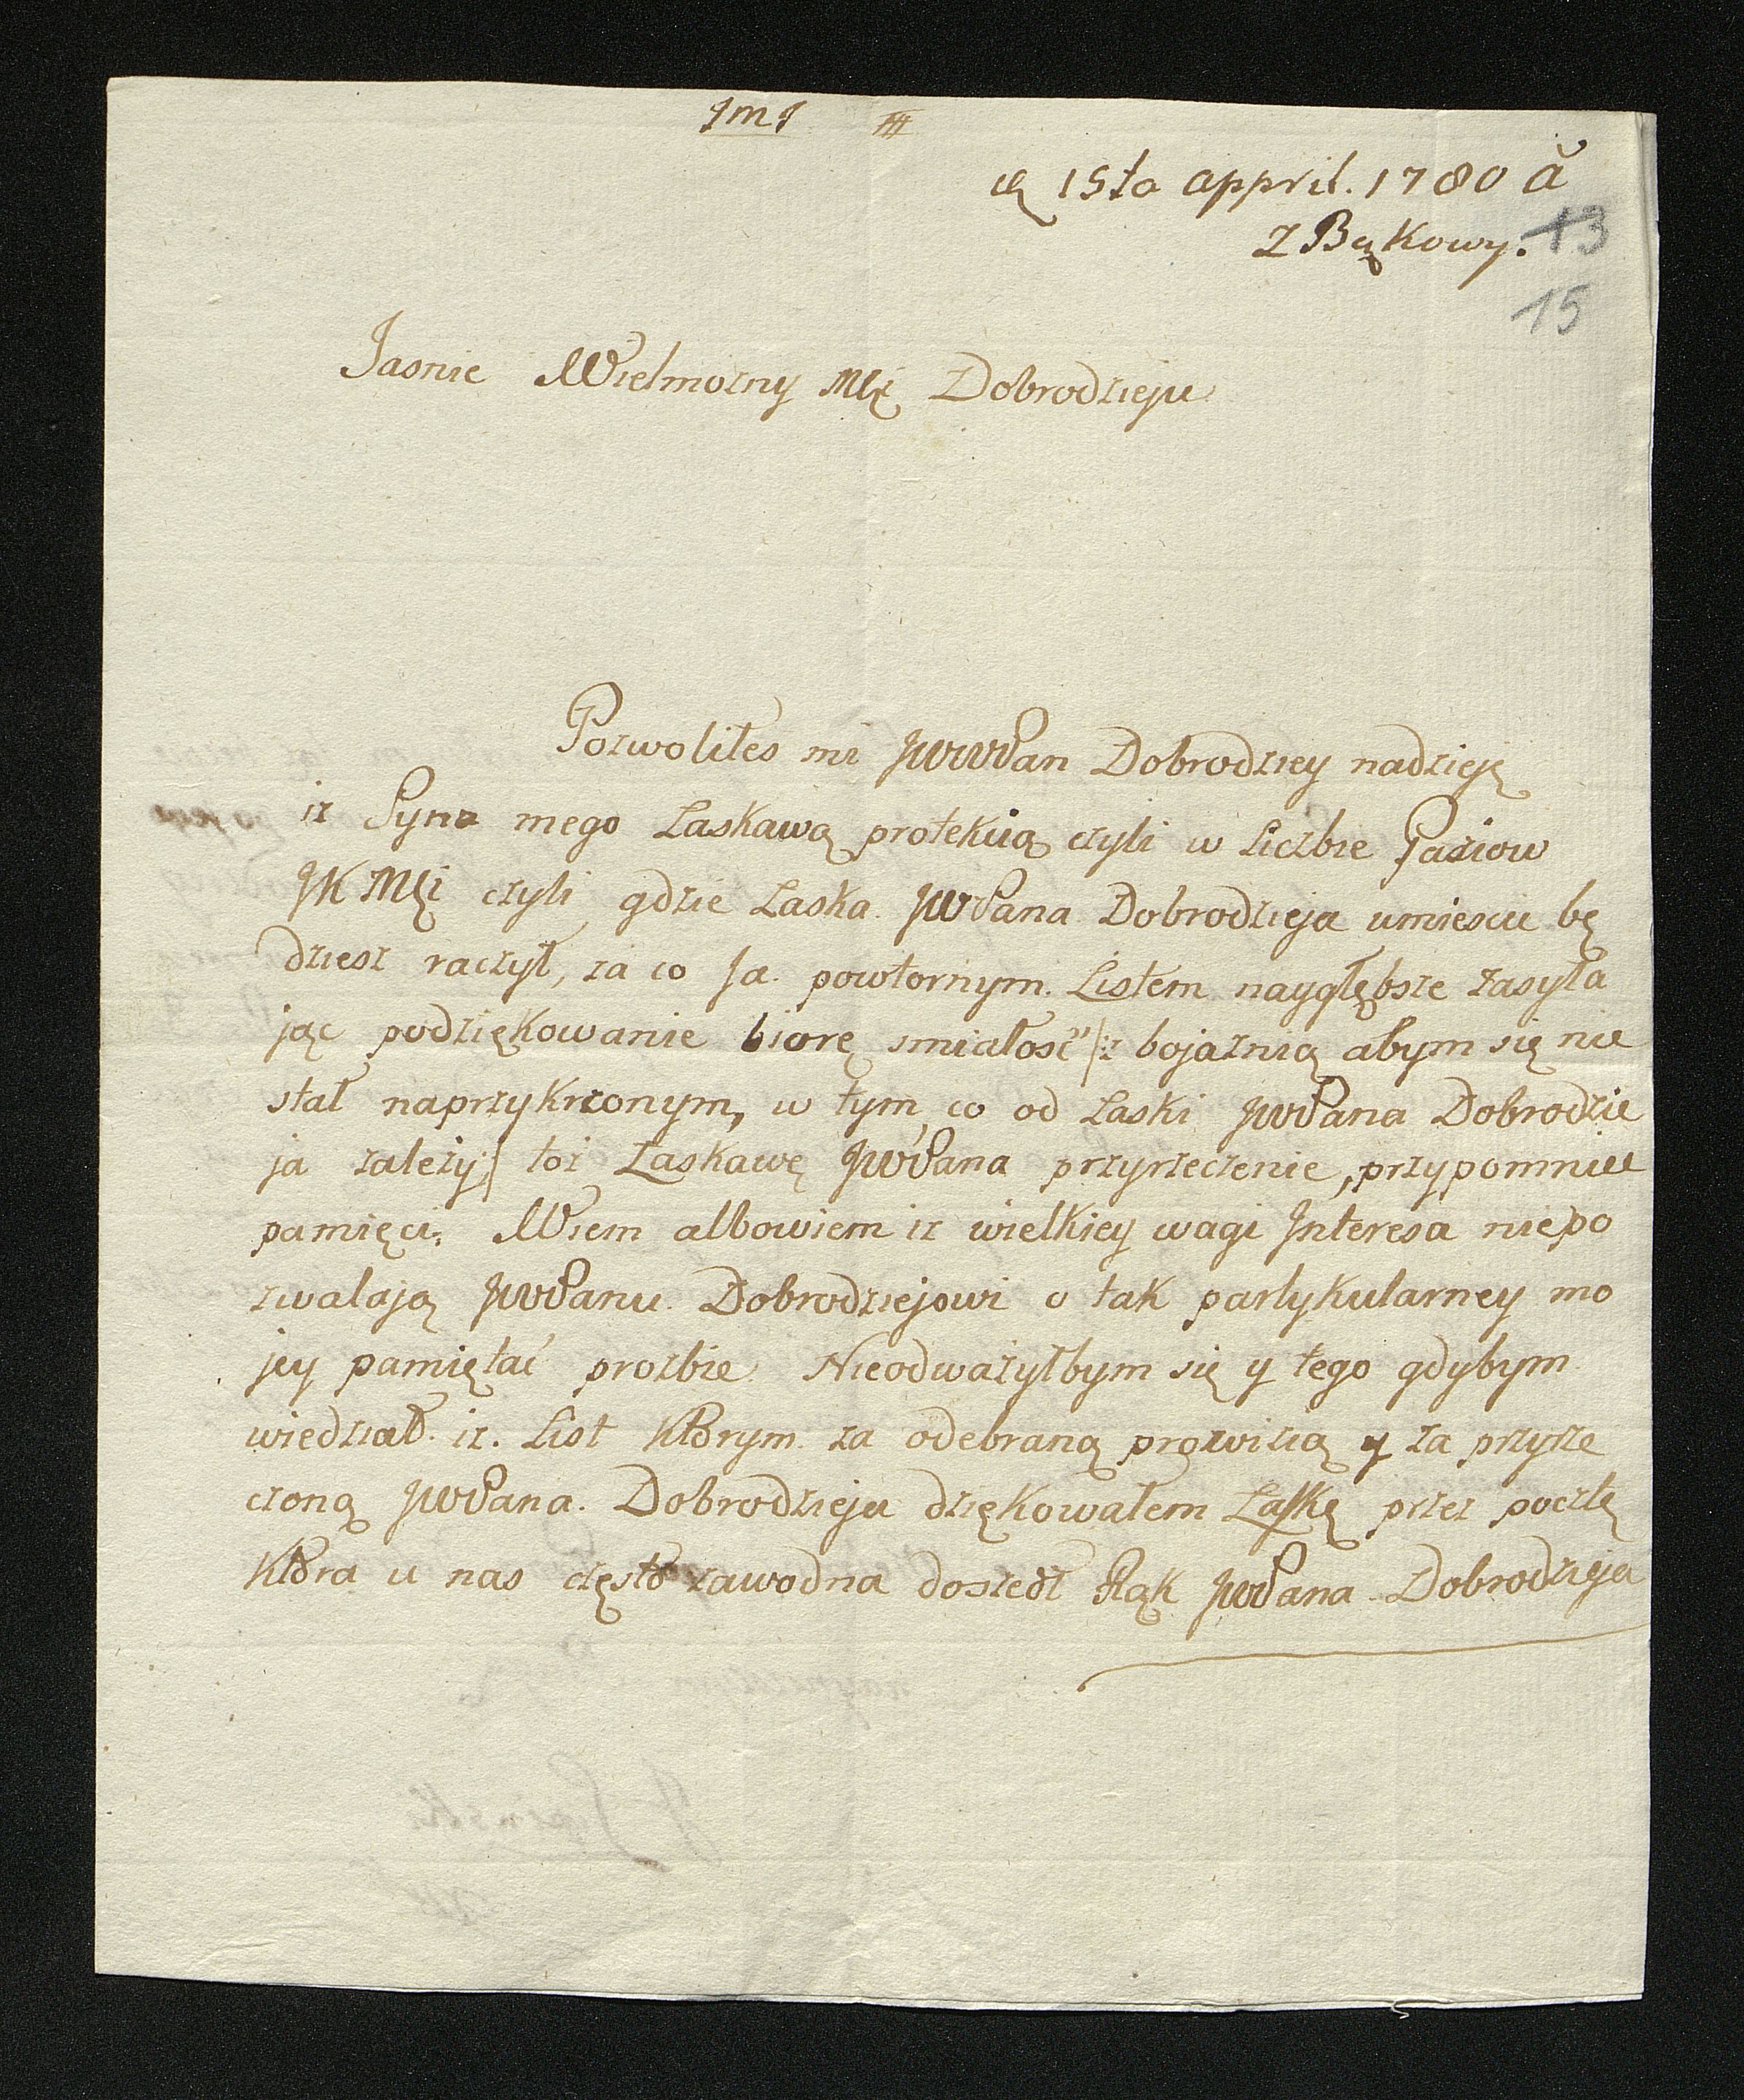 JMJ
15to appril. 1780 ă
Z Bąkowy. 13
15
Jasnie Wielmozny Mći Dobrodzieju
Pozwoliłes mi JWWPan Dobrodziey nadzieję
iz Syna mego Łaskawą protekcią czyli w liczbie Paziow
JK Mći czyli gdzie Łaska JWPana Dobrodzieja umiescic bę
dziesz raczył, za co Ja powtornym Listem naygłębsze zasyła
jąc podziękowanie biorę smiałosć |: z bojaznią abym się nie
stał naprzykrzonym, w tym co od Łaski JWPana Dobrodzie
ja zalezy :| toz Łaskawę JWPana przyrzeczenie, przypomniec
pamięci. Wiem albowiem iz wielkiey wagi Interesa niepo
zwalają JWPanu Dobrodziejowi o tak partykularney mo
jey pamiętać prozbie. Nieodwazyłbym się y tego gdybym
wiedział iz List ktorym za odebraną prowizią y za przyrze
czoną JWPana Dobrodzieja dziękowałem Łaskę przez pocztę
ktora u nas często zawodna doszedł Rąk JWPana Dobrodzieja